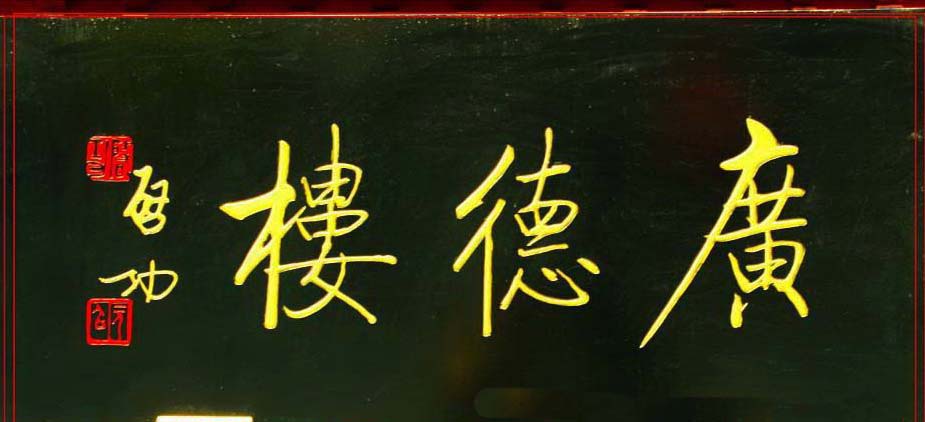 廣德樓
啟功